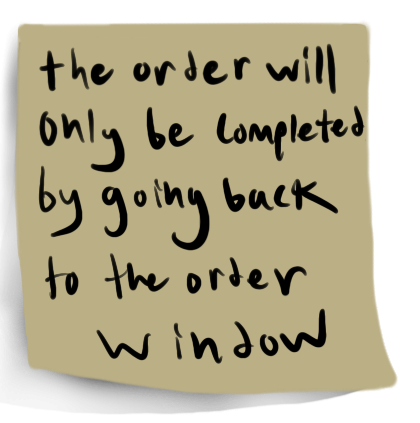 the order will
only be completed
by going back
to the order
window